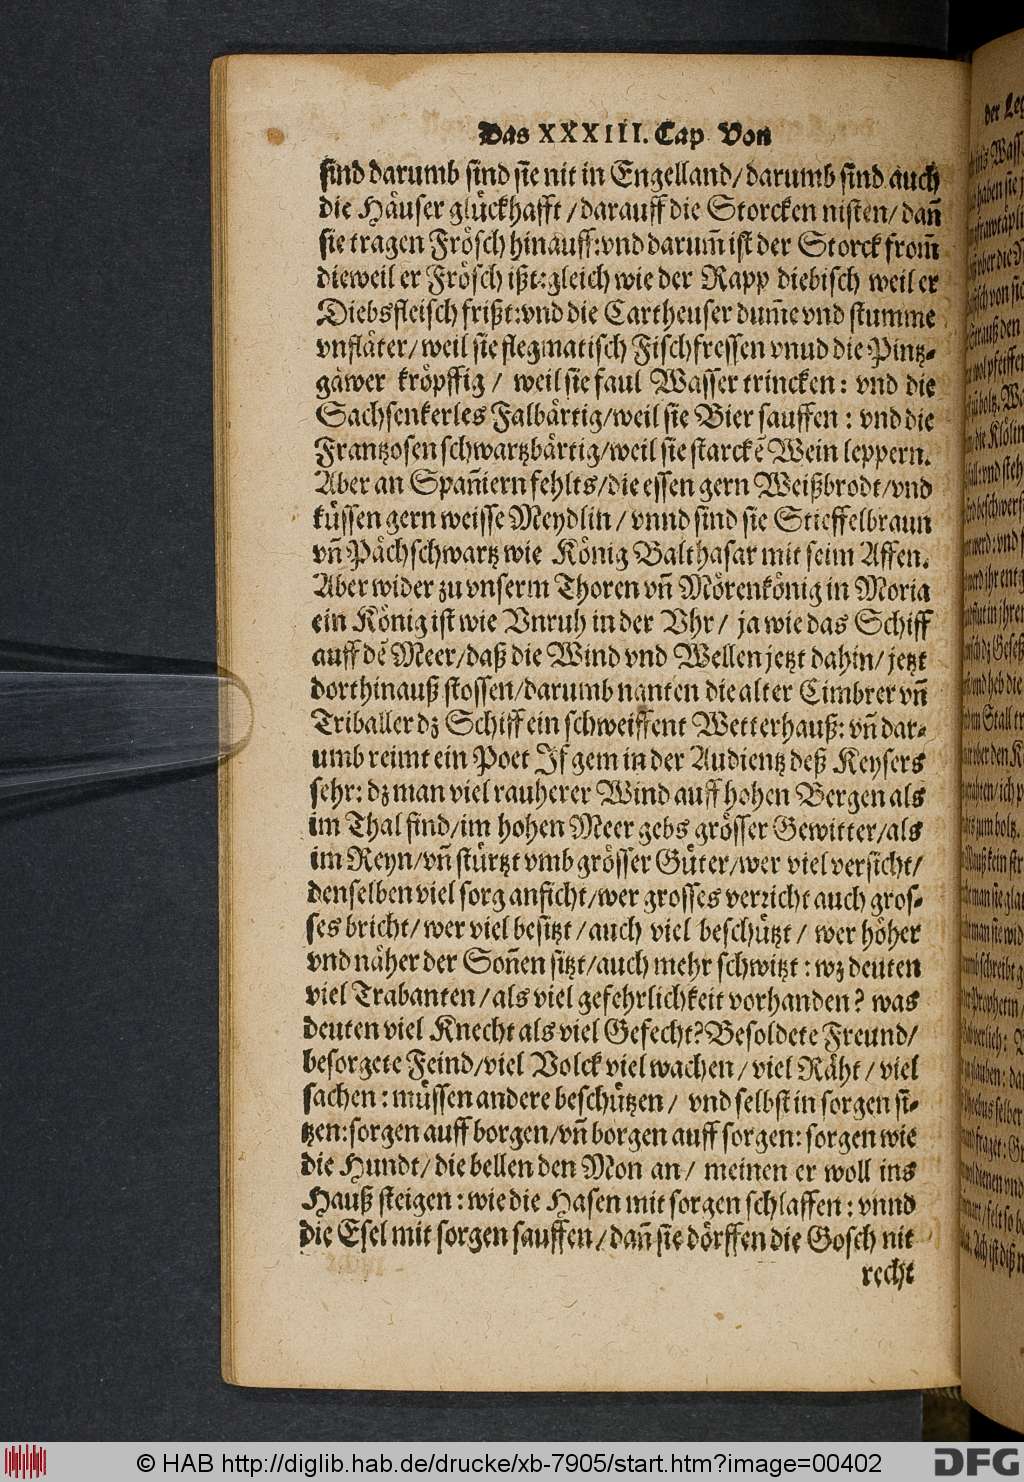 Das XXXIII. Cap Von
sind darumb sind sie nit in Engelland/ darumb sind auch
die Häuser glückhafft / darauff die Storcken nisten/ dañ
sie tragen Frösch hinauff: vnd darum̃ ist der Storck from̃
dieweil er Frösch ißt: gleich wie der Rapp diebisch weil er
Diebsfleisch frißt: vnd die Cartheuser dum̃e vnd stumme
vnfläter/ weil sie flegmatisch Fischfressen vnud die Pintz-
gäwer kröpffig / weil sie faul Wasser trincken: vnd die
Sachsenkerles Falbärtig/ weil sie Bier sauffen : vnd die
Frantzosen schwartzbärtig/ weil sie starckẽ Wein leppern.
Aber an Spañiern fehlts/ die essen gern Weißbrodt/ vnd
küssen gern weisse Meydlin / vnnd sind sie Stieffelbraun
vñ Pächschwartz wie König Balthasar mit seim Affen.
Aber wider zu vnserm Thoren vñ Mörenkönig in Moria
ein König ist wie Vnruh in der Vhr/ ja wie das Schiff
auff dẽ Meer/ daß die Wind vnd Wellen jetzt dahin/ jetzt
dorthinauß stossen/ darumb nanten die alter Cimbrer vñ
Triballer dz Schiff ein schweiffent Wetterhauß: vñ dar-
umb reimt ein Poet Isgem in der Audientz deß Keysers
sehr: dz man viel rauherer Wind auff hohen Bergen als
im Thal find/ im hohen Meer gebs grösser Gewitter/ als
im Reyn/ vñ stürtzt vmb grösser Güter/ wer viel versicht/
denselben viel sorg anficht/ wer grosses verricht auch gros-
ses bricht/ wer viel besitzt / auch viel beschützt / wer höher
vnd näher der Soñen sitzt/ auch mehr schwitzt : wz deuten
viel Trabanten / als viel gefehrlichkeit vorhanden? was
deuten viel Knecht als viel Gefecht? Besoldete Freund/
besorgete Feind/ viel Volck viel wachen / viel Räht / viel
sachen : müssen andere beschützen / vnd selbst in sorgen si-
tzen: sorgen auff borgen/ vñ borgen auff sorgen: sorgen wie
die Hundt/ die bellen den Mon an / meinen er woll ins
Hauß steigen : wie die Hasen mit sorgen schlaffen : vnnd
die Esel mit sorgen sauffen / dañ sie dörffen die Gosch nit
recht
© HAB http://diglib.hab.de/drucke/xb-7905/start.htm?image=00402
DFG